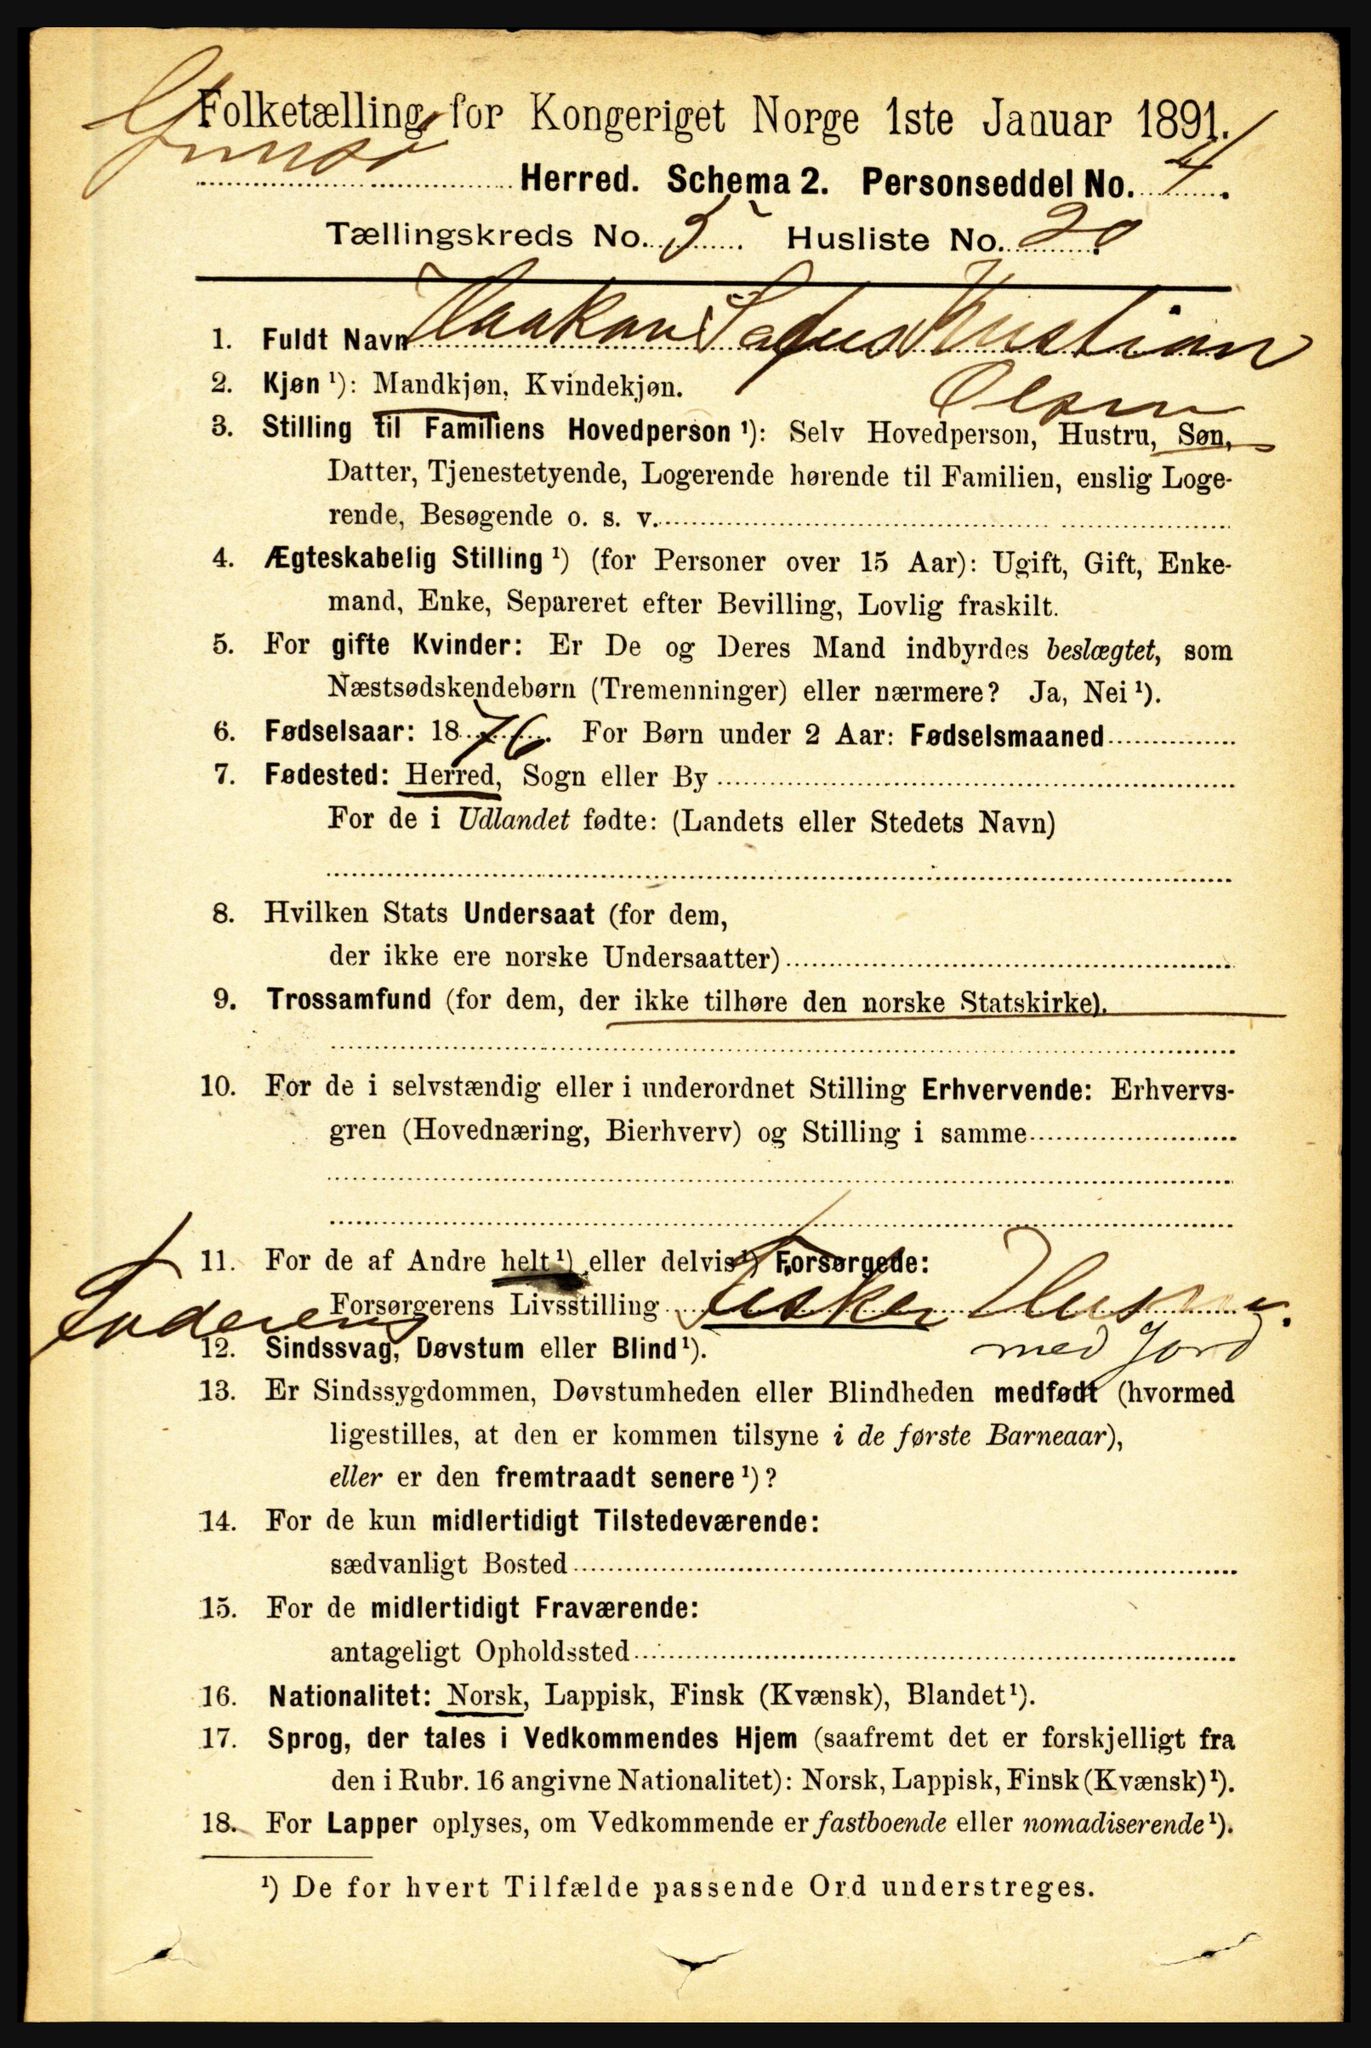 Folketælling for Kongeriget Norge 1ste Januar 1891.
Gimsø Herred. Schema 2. Personseddel No. 4.
Tællingskreds No. 5. Husliste No. 20.
1. Fuldt Navn Haakon Kristian
Olsen
2. Kjøn ¹): Mandkjøn, Kvindekjøn.
3. Stilling til Familiens Hovedperson ¹): Selv Hovedperson, Hustru, Søn,
Datter, Tjenestetyende, Logerende hørende til Familien, enslig Loge-
rende, Besøgende o. s. v.
4. Ægteskabelig Stilling ¹) (for Personer over 15 Aar): Ugift, Gift, Enke-
mand, Enke, Separeret efter Bevilling, Lovlig fraskilt.
5. For gifte Kvinder: Er De og Deres Mand indbyrdes beslægtet, som
Næstsødskendebørn (Tremenninger) eller nærmere? Ja, Nei ¹).
6. Fødselsaar: 1876. For Børn under 2 Aar: Fødselsmaaned
7. Fødested: Herred, Sogn eller By
For de i Udlandet fødte: (Landets eller Stedets Navn)
8. Hvilken Stats Undersaat (for dem,
der ikke ere norske Undersaatter)
9. Trossamfund (for dem, der ikke tilhøre den norske Statskirke).
10. For de i selvstændig eller i underordnet Stilling Erhvervende: Erhvervs-
gren (Hovednæring, Bierhverv) og Stilling i samme
11. For de af Andre helt ¹) eller delvis ¹) Forsørgede:
Faderens Forsørgerens Livsstilling Fisker Husm.
med Jord
12. Sindssvag, Døvstum eller Blind ¹).
13. Er Sindssygdommen, Døvstumheden eller Blindheden medfødt (hvormed
ligestilles, at den er kommen tilsyne i de første Barneaar),
eller er den fremtraadt senere ¹)?
14. For de kun midlertidigt Tilstedeværende:
sædvanligt Bosted
15. For de midlertidigt Fraværende:
antageligt Opholdssted
16. Nationalitet: Norsk, Lappisk, Finsk (Kvænsk), Blandet ¹).
17. Sprog, der tales i Vedkommendes Hjem (saafremt det er forskjelligt fra
den i Rubr. 16 angivne Nationalitet): Norsk, Lappisk, Finsk (Kvænsk) ¹).
18. For Lapper oplyses, om Vedkommende er fastboende eller nomadiserende ¹).
¹) De for hvert Tilfælde passende Ord understreges.